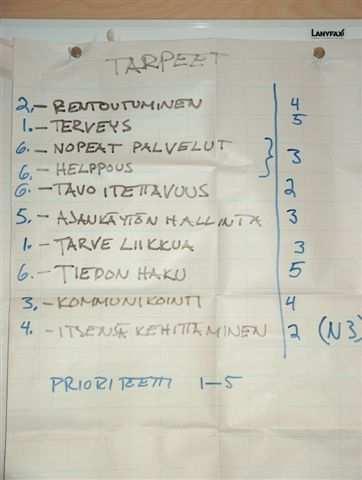 LANYFAX
TARPEET
2. - RENTOUTUMINEN 4
1. - TERVEYS 5
6. - NOPEAT PALVELUT } 3
6. - HELPPOUS
6. - TAVOITETTAVUUS 2
5. - AJANKÄYTÖN HALLINTA 3
1. - TARVE LIIKKUA 3
6. - TIEDON HAKU 5
3. - KOMMUNIKOINTI 4
4. - ITSENSÄ KEHITTÄMINEN 2 (N3)
PRIORITEETTI 1-5